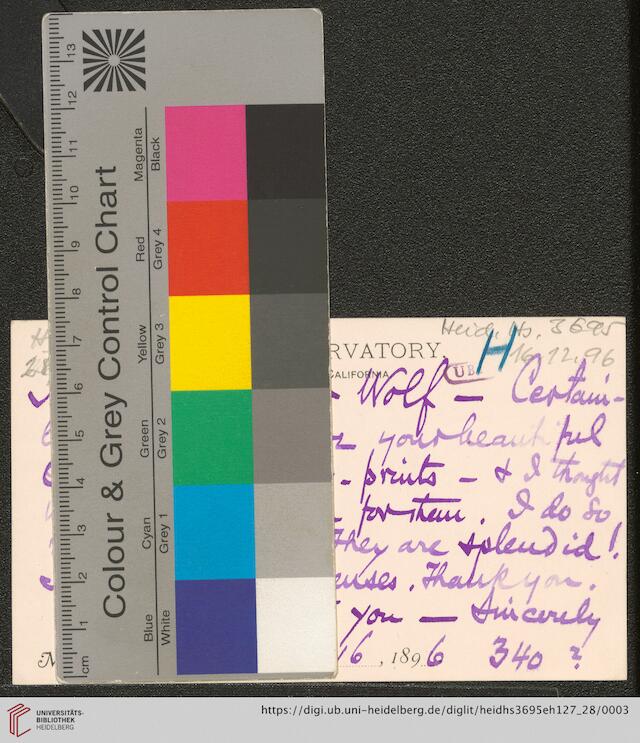 Colour & Grey Control Chart
Magenta
Black
Red
Grey 4
Yellow
Grey 3
Green
Grey 2
Cyan
Grey 1
Blue
White
13
12
11
10
9
8
7
6
5
4
3
2
1
cm
Heid. Hs. 3695
16.12.96
H
UB
RVATORY,
CALIFORNIA
Wolf — Certain-
your beautiful
- prints - & I thought
for them. I do so
They are splendid!
Thank you.
you — Sincerely
16, 1896 340 ?
UNIVERSITÄTS-
BIBLIOTHEK
HEIDELBERG
https://digi.ub.uni-heidelberg.de/diglit/heidhs3695eh127_28/0003